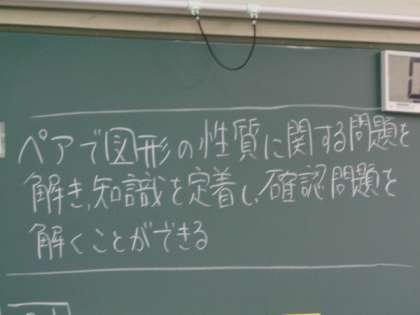 ペアで図形の性質に関する問題を
解き、知識を定着し、確認問題を
解くことができる